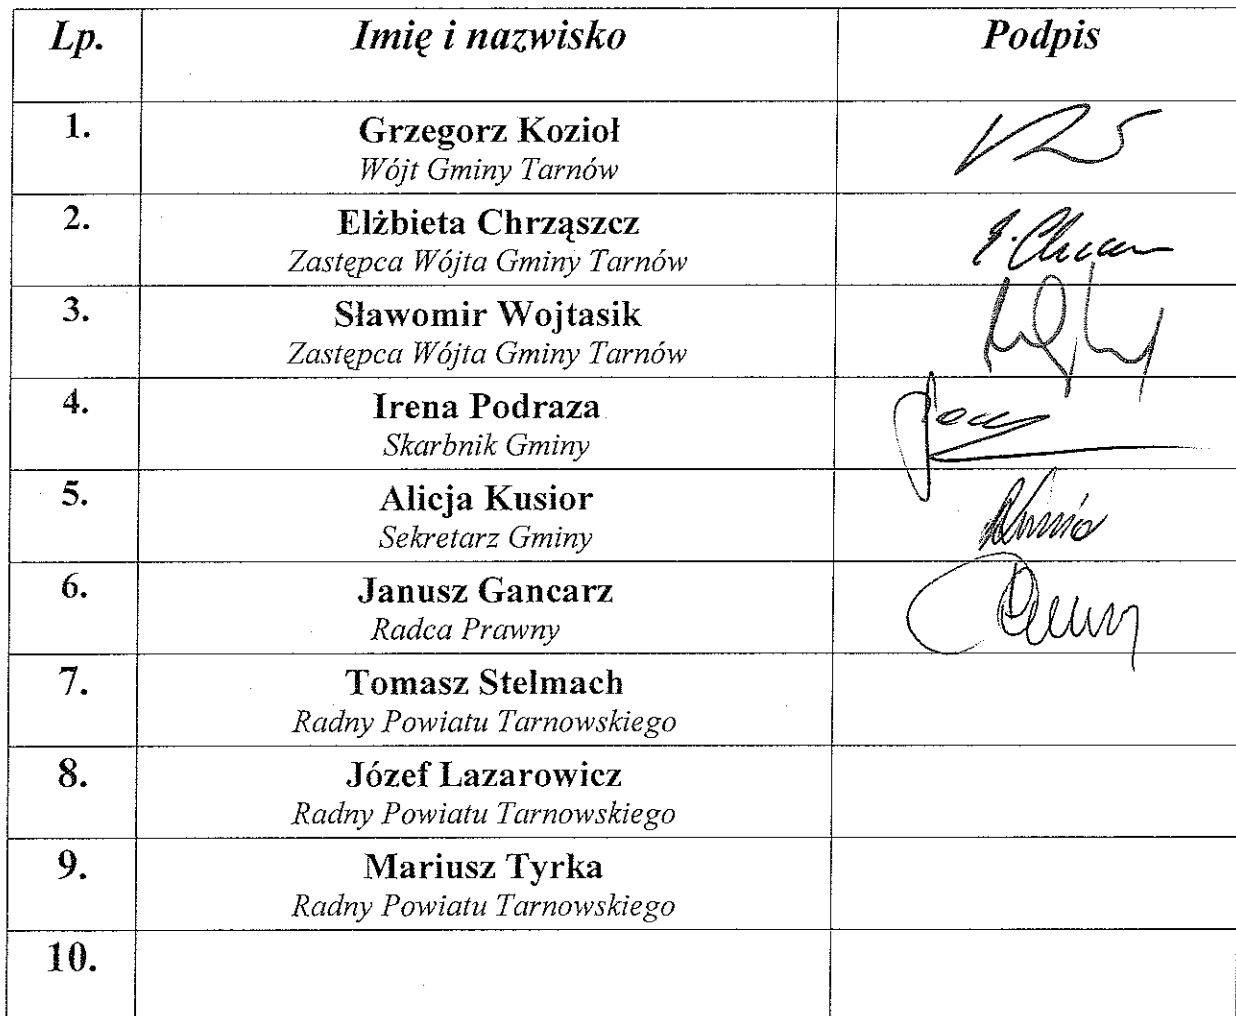 Lp. Imię i nazwisko Podpis
1. Grzegorz Kozioł
Wójt Gminy Tarnów
2. Elżbieta Chrząszcz
Zastępca Wójta Gminy Tarnów
3. Sławomir Wojtasik
Zastępca Wójta Gminy Tarnów
4. Irena Podraza
Skarbnik Gminy
5. Alicja Kusior
Sekretarz Gminy
6. Janusz Gancarz
Radca Prawny
7. Tomasz Stelmach
Radny Powiatu Tarnowskiego
8. Józef Lazarowicz
Radny Powiatu Tarnowskiego
9. Mariusz Tyrka
Radny Powiatu Tarnowskiego
10.